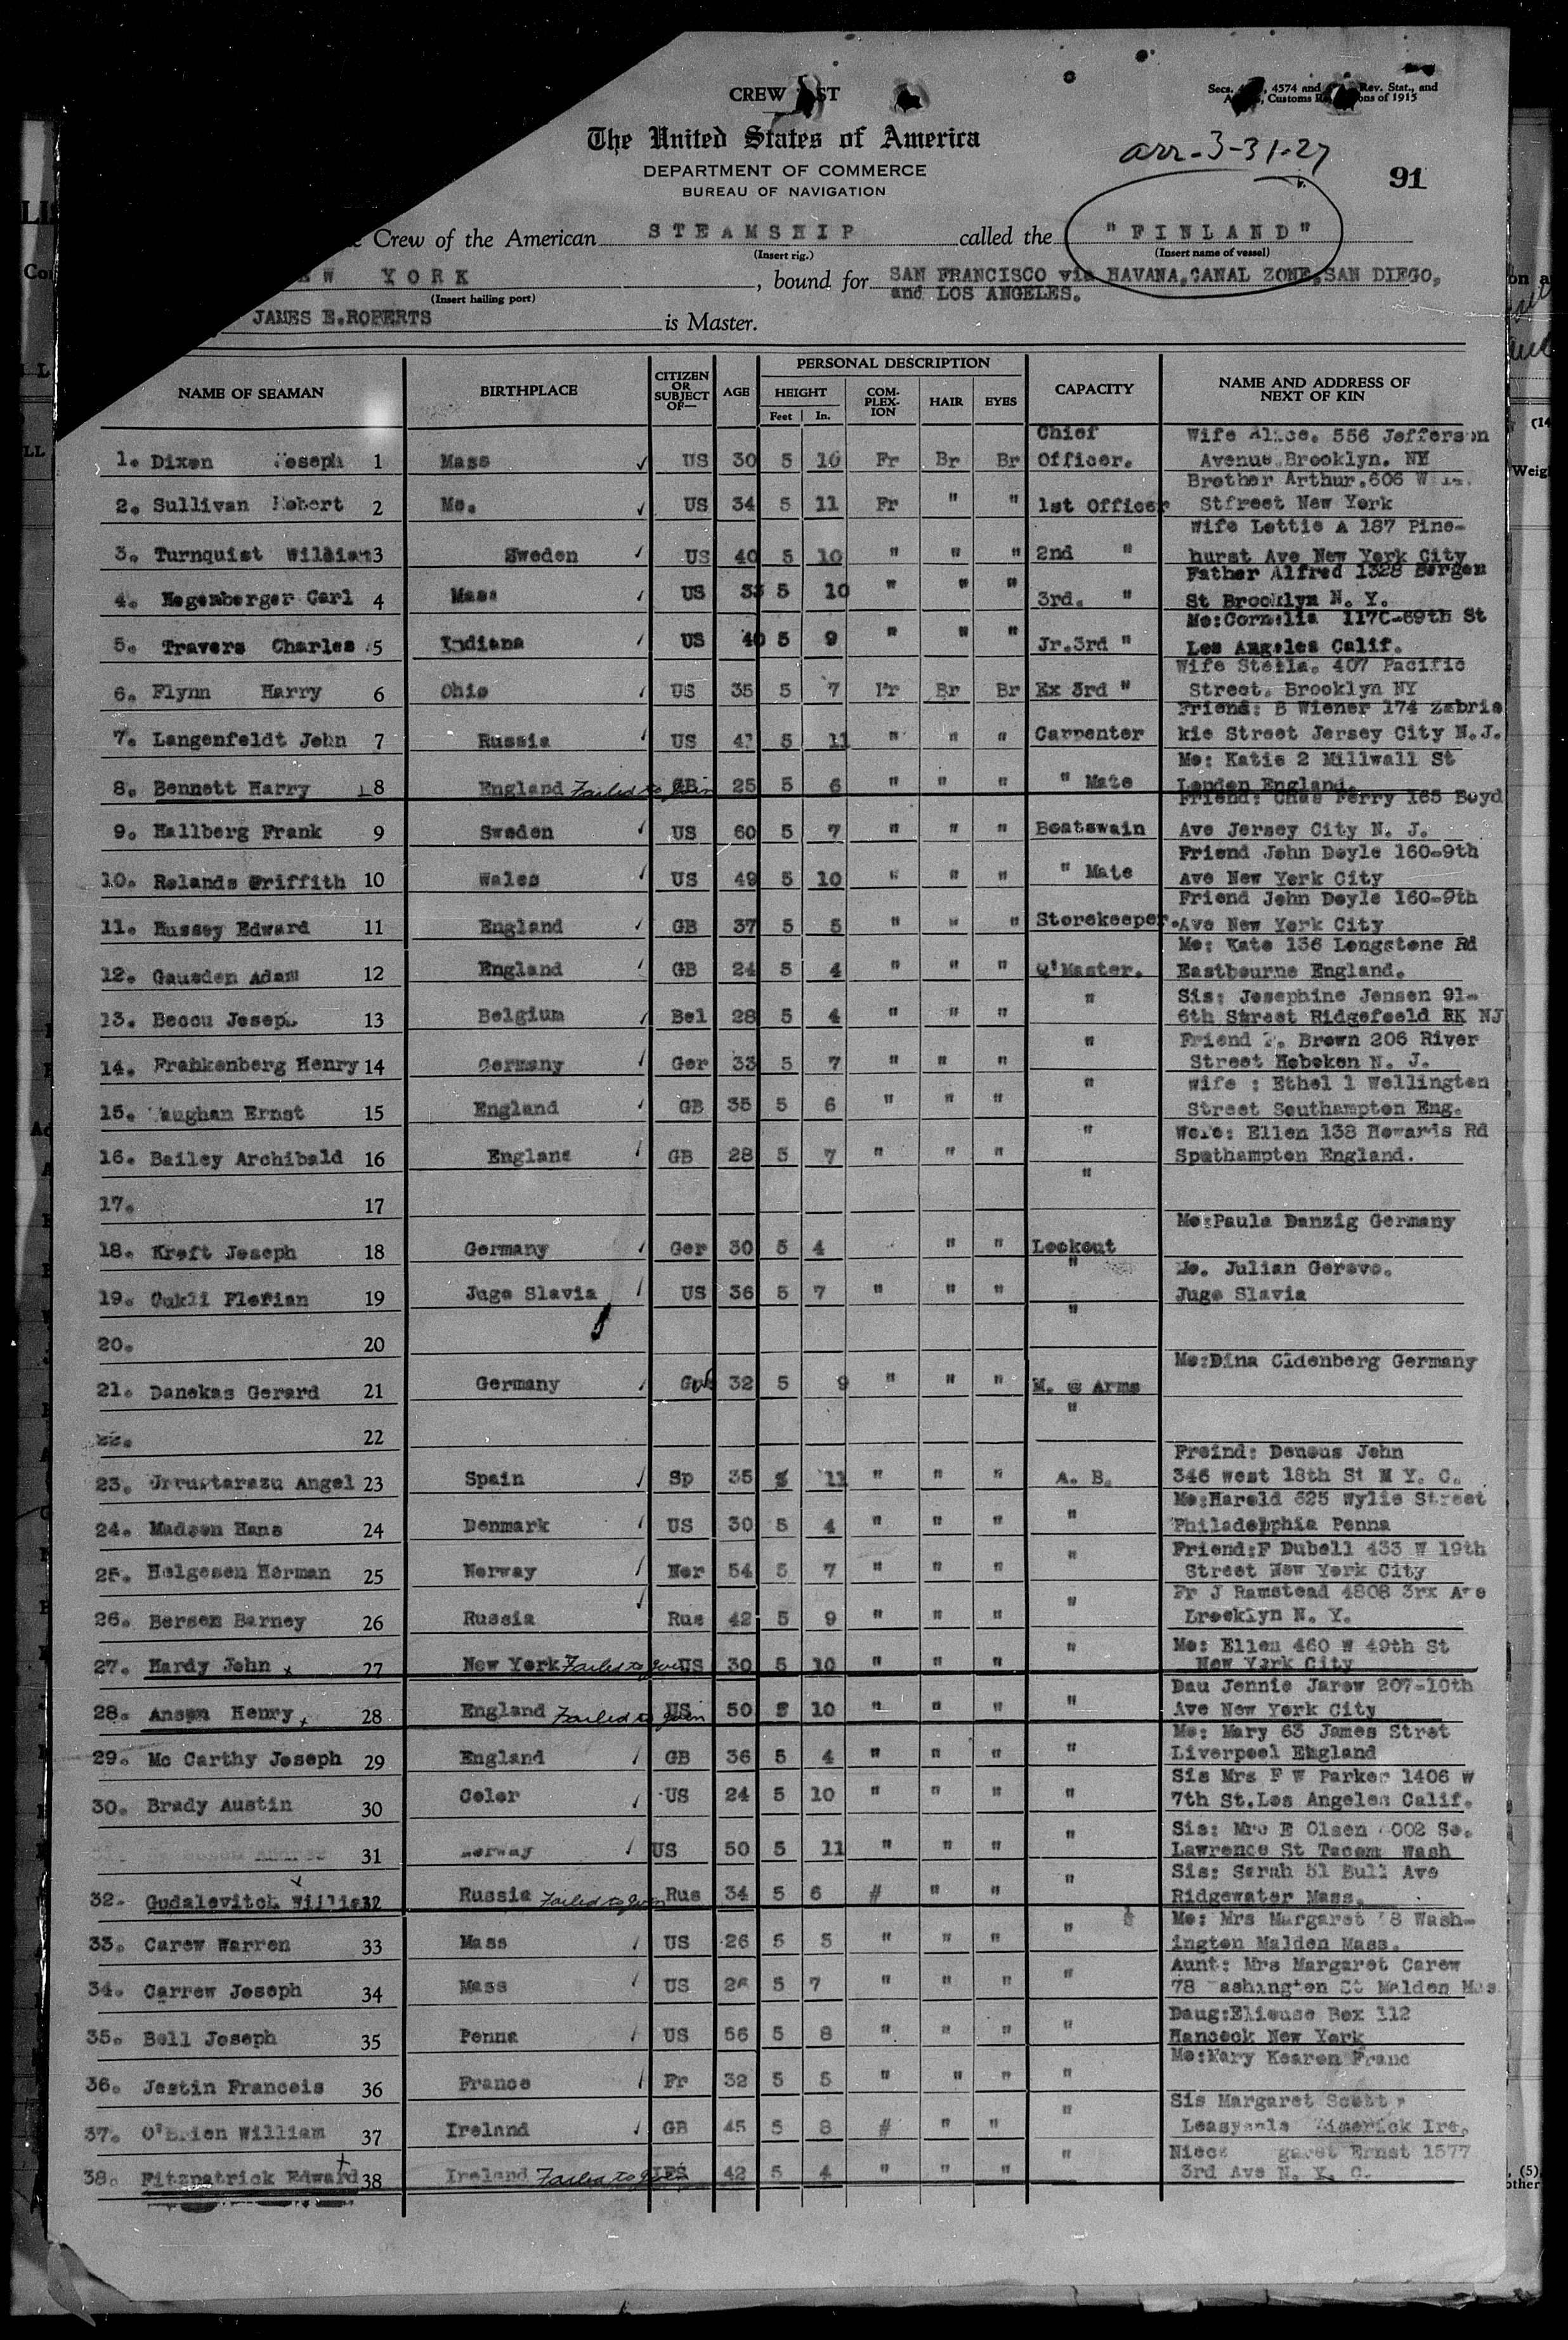 CREW
Rev. Stat., and
Customs
of 1915
The United States of America
arr-3-31-27
DEPARTMENT OF COMMERCE
91
BUREAU OF NAVIGATION
Crew of the American STEAMSHIP called the "FINLAND"
(Insert rig.) (Insert name of vessel)
YORK , bound for SAN FRANCISCO via HAVANA,CANAL ZONE,SAN DIEGO,
(Insert hailing port) and LOS ANGELES.
JAMES E.ROBERTS is Master.
NAME OF SEAMAN BIRTHPLACE CITIZEN OR SUBJECT OF— AGE PERSONAL DESCRIPTION CAPACITY NAME AND ADDRESS OF NEXT OF KIN
HEIGHT COM-PLEX-ION HAIR EYES
Feet In.
Chief Wife Alice. 556 Jefferson
1. Dixon Joseph 1 Mass US 30 5 10 Fr Br Br Officer. Avenue Brooklyn. NY
Brother Arthur.606 W
2. Sullivan Robert 2 Me. US 34 5 11 Fr " " 1st Officer Stfreet New York
Wife Lottie A 187 Pine-
3. Turnquist William 3 Sweden US 40 5 10 " " " 2nd " hurst Ave New York City
Father Alfred 1328 Bergen
4. Hegemberger Carl 4 Mass US 33 5 10 " " " 3rd. " St Brooklyn N. Y.
Mo:Cornelia 1170-69th St
5. Travers Charles 5 Indiana US 40 5 9 " " " Jr.3rd " Los Angeles Calif.
Wife Stella. 407 Pacific
6. Flynn Harry 6 Ohio US 35 5 7 Fr Br Br Ex 3rd " Street. Brooklyn NY
Friend: B Wiener 174 Zabris
7. Langenfeldt John 7 Russia US 5 11 " " " Carpenter kie Street Jersey City N.J.
Mo: Katie 2 Millwall St
8. Bennett Harry 8 England Failed to join GB 25 5 6 " " " " Mate London England.
Friend: Chas Ferry 165 Boyd
9. Hallberg Frank 9 Sweden US 60 5 7 " " " Boatswain Ave Jersey City N. J.
Friend John Doyle 160-9th
10. Rolands Griffith 10 Wales US 49 5 10 " " " " Mate Ave New York City
Friend John Doyle 160-9th
11. Hussey Edward 11 England GB 37 5 5 " " " Storekeeper. Ave New York City
Mo: Kate 136 Longstone Rd
12. Gausden Adam 12 England GB 24 5 4 " " " Q'Master. Eastbourne England.
" Sis: Josephine Jensen 91-
13. Beccu Joseph 13 Belgium Bel 28 5 4 " " " 6th Street Ridgefeeld PK NJ
" Friend Brown 206 River
14. Frahkenberg Henry 14 Germany Ger 33 5 7 " " " Street Hoboken N. J.
" Wife : Ethel 1 Wellington
15. Vaughan Ernst 15 England GB 35 5 6 " " " Street Southampton Eng.
" Ellen 138 Howards Rd
16. Bailey Archibald 16 England GB 28 5 7 " " " Spathampton England.
"
17. 17
Mo:Paula Danzig Germany
18. Kreft Joseph 18 Germany Ger 30 5 4 " " Lookout
" Mo. Julian Gorevo.
19. Cukli Florian 19 Jugo Slavia US 36 5 7 " " " Jugo Slavia
"
20. 20
Mo:Dina Oldenberg Germany
21. Danekas Gerard 21 Germany 32 5 9 " " " M. @ Arms
"
22. 22
Freind: Deneus John
23. Urrustarazu Angel 23 Spain Sp 35 5 11 " " " A. B. 346 west 18th St N Y. C.
Mo:Harold 625 Wylie Street
24. Madsen Hans 24 Denmark US 30 5 4 " " " " Philadelphhia Penna
Friend:F Dubell 433 W 19th
25. Helgesen Herman 25 Norway Nor 54 5 7 " " " " Street New York City
Fr J Ramstead 4808 3rx Ave
26. Bersen Barney 26 Russia Rus 42 5 9 " " " " Brooklyn N. Y.
Mo: Ellen 460 W 49th St
27. Hardy John x 27 New York Failed to join US 30 5 10 " " " " New York City
Dau Jennie Jarow 207-10th
28. Anson Henry x 28 England Failed to join US 50 5 10 " " " " Ave New York City
Mo: Mary 63 James Stret
29. Mc Carthy Joseph 29 England GB 36 5 4 " " " " Liverpool England
Sis Mrs F W Parker 1406 W
30. Brady Austin 30 Color US 24 5 10 " " " " 7th St.Los Angeles Calif.
Sis: Mrs E Olsen 002 So.
31 Norway US 50 5 11 " " " " Lawrence St Tacom Wash
Sis: Sarah 51 Bull Ave
32. Gudalevitch Willia 32 Russia Failed to join Rus 34 5 6 # " " " Ridgewater Mass.
Mo: Mrs Margaret 78 Wash-
33. Carew Warren 33 Mass US 26 5 5 " " " " ington Malden Mass.
Aunt: Mrs Margaret Carew
34. Carrew Joseph 34 Mass US 26 5 7 " " " " 78 ashington St Malden Mas
Daug:Eliouse Box 112
35. Bell Joseph 35 Penna US 56 5 8 " " " " Hancock New York
Mo:Mary Kearon Franc
36. Jestin Francois 36 France Fr 32 5 5 " " " "
Sis Margaret Scott
37. O'Brien William 37 Ireland GB 45 5 8 # " " " Limerick Ire.
Niece garet Ernst 1577
38. Fitzpatrick Edward 38 Ireland Failed to join US 42 5 4 " " " " 3rd Ave N. Y. C.